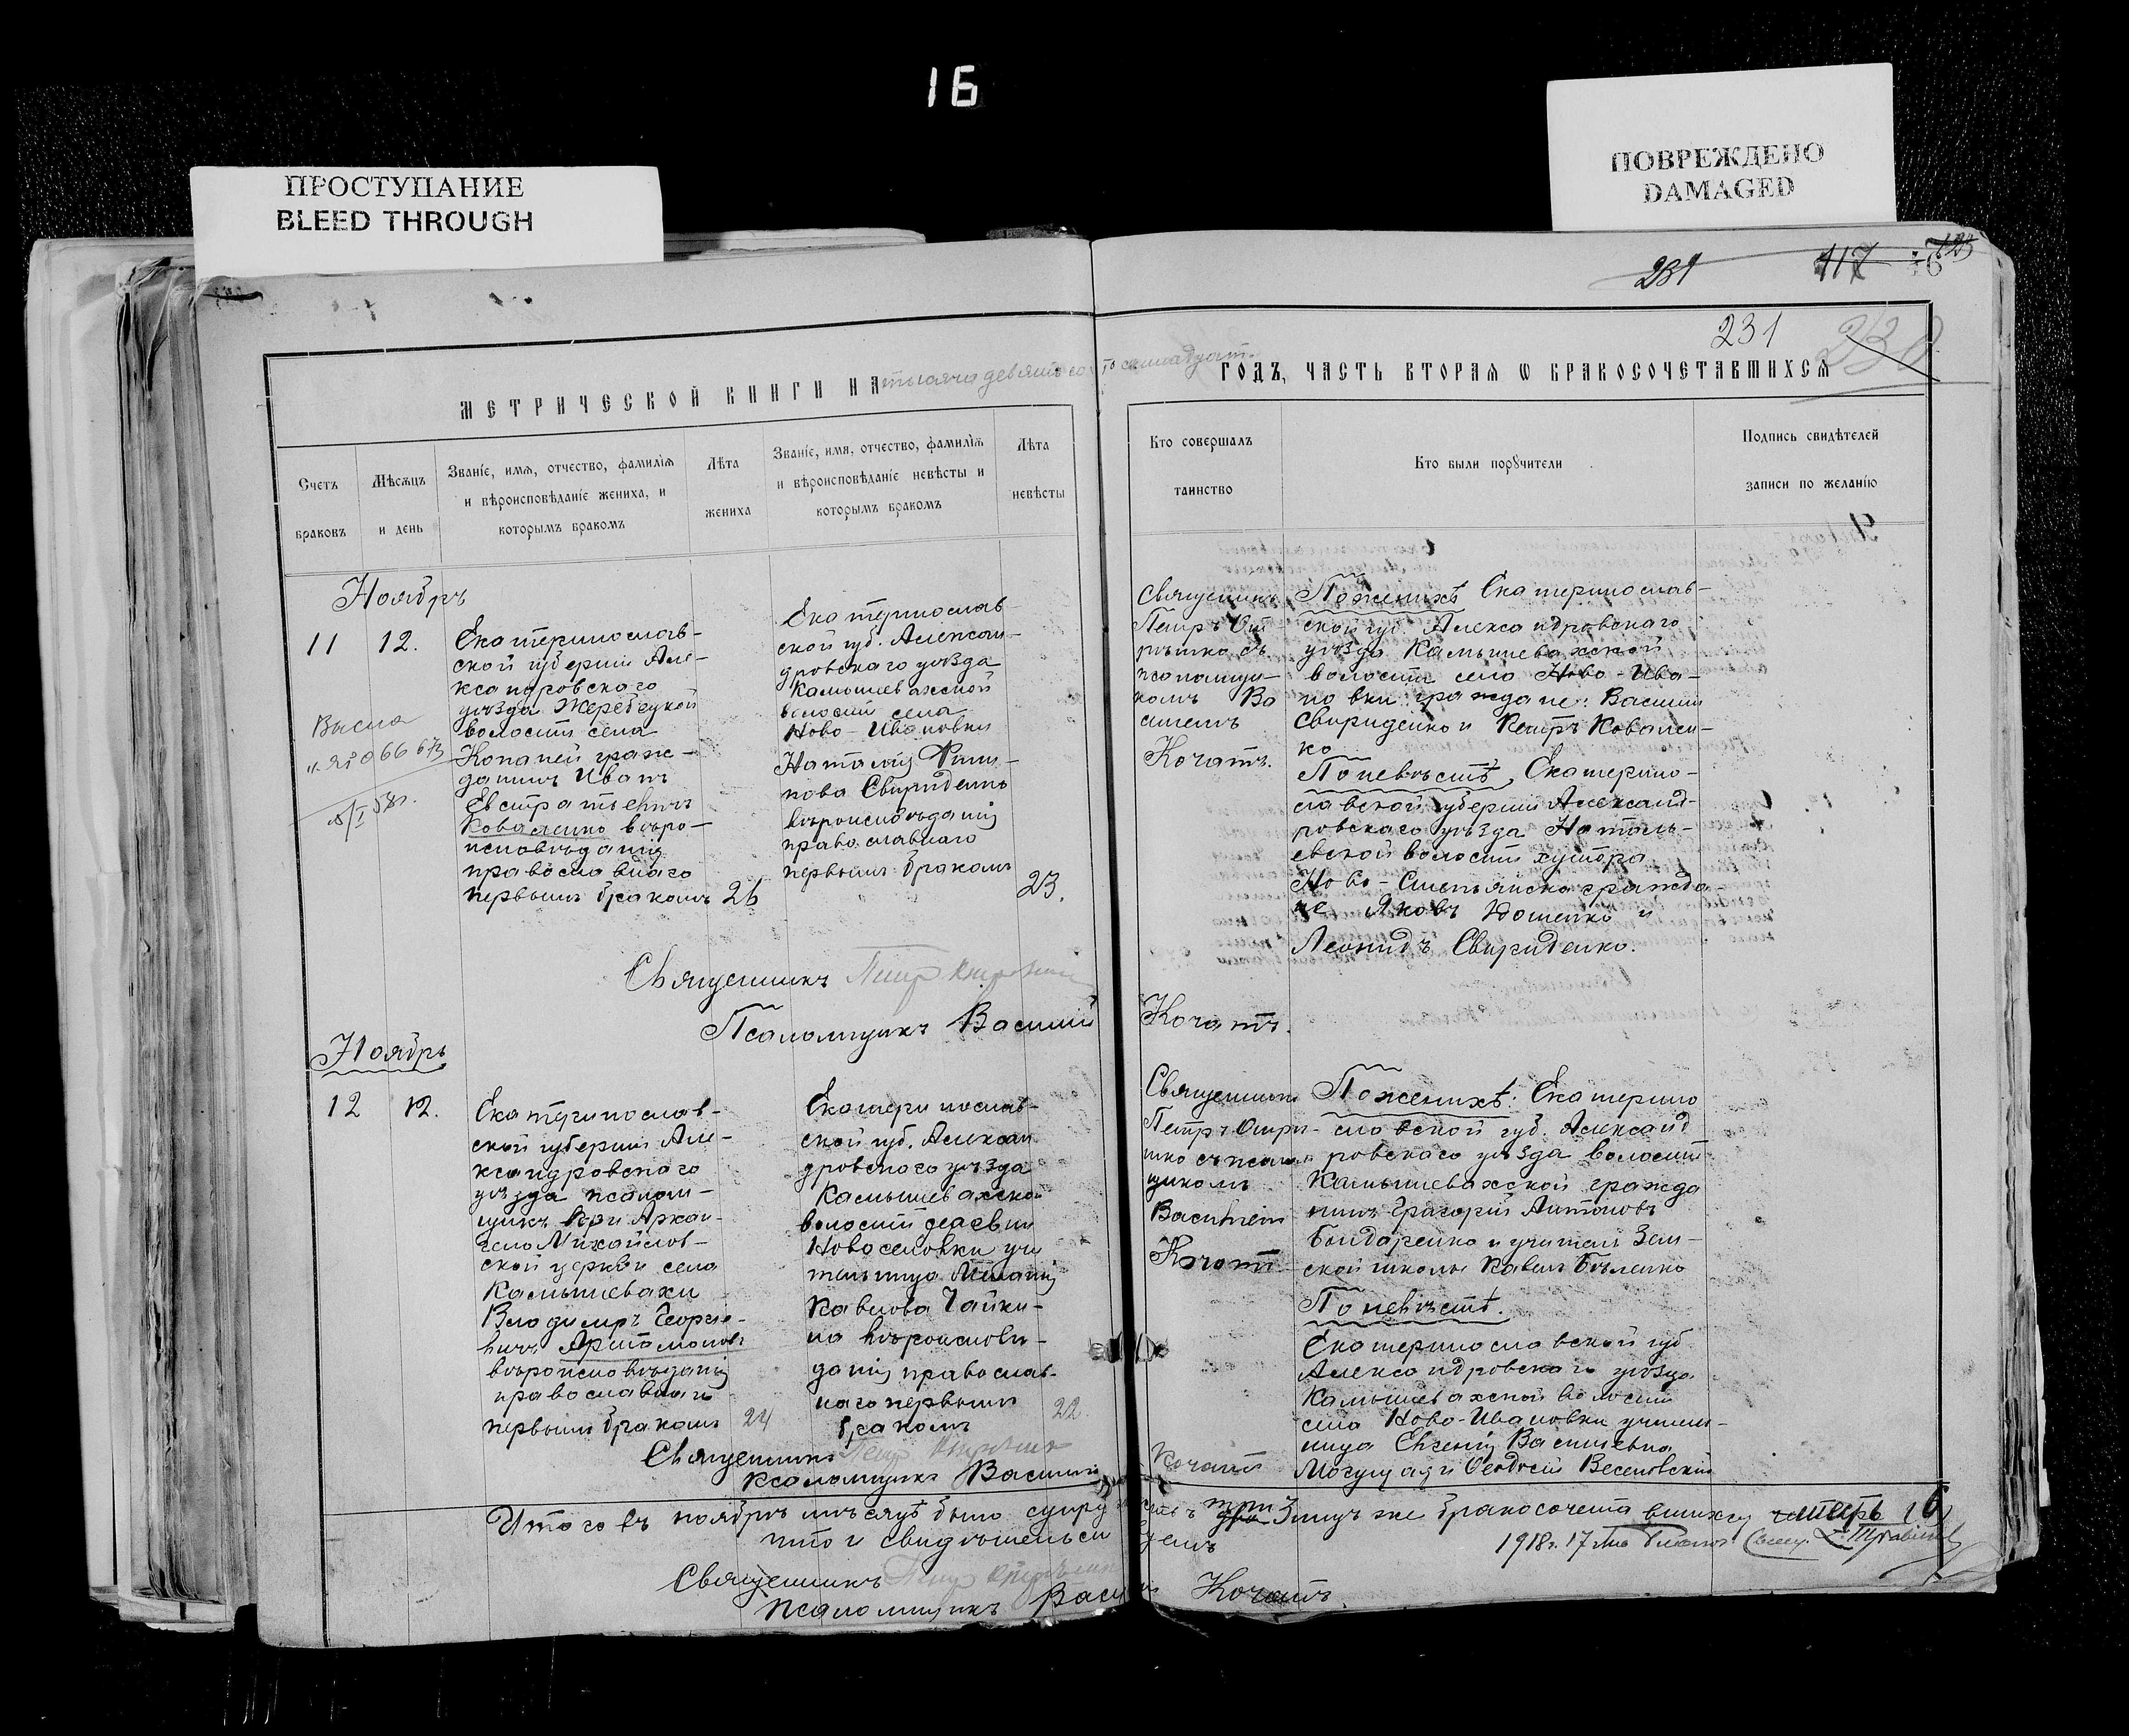 16
ПРОСТУПАНИЕ
BLEED THROUGH
ПОВРЕЖДЕНО
DAMAGED
231 117
231
МЕТРИЧЕСКОЙ КНИГИ НА тысяча девятьсот семнадцат- ГОДЪ, ЧАСТЬ ВТОРАЯ Ѡ БРАКОСОЧЕТАВШИХСЯ
Счетъ
браковъ
Мѣсяцъ
и день
Званіе, имя, отчество, фамилія
и вѣроисповѣданіе жениха, и
которымъ бракомъ
Лѣта
жениха
Званіе, имя, отчество, фамилія
и вѣроисповѣданіе невѣсты и
которымъ бракомъ
Лѣта
невѣсты
Кто совершалъ
таинство
Кто были порꙋчители
Подпись свидѣтелей
записи по желанію
Ноябрь
11 12.
Екатеринослав-
ской губерніи Але-
ксандровскаго
уѣзда Жеребецкой
волости села
Копаней граж-
данинъ Иванъ
Евстратьевичъ
Коваленко вѣро-
исповѣданія
православнаго
первымъ бракомъ 26
Екатеринослав-
ской губ. Алексан-
дровскаго уѣзда
Камышевахской
волости села
Ново-Ивановки
Наталія
Свириденко
вѣроисповѣданія
православнаго
первымъ бракомъ
23.
Священникъ
Петръ
съ
псаломщи-
комъ Ва
силіемъ
Кочатъ.
По женихѣ Екатеринослав-
ской губ. Александровскаго
уѣзда Камышевахской
волости села Ново-Ива-
новки граждане: Василій
Свириденко и Петръ Ковален-
ко
По невѣстѣ, Екатерино-
славской губерніи Александ-
ровскаго уѣзда Наталь-
евской волости хутора
Ново- гражда-
не Яковъ и
Леонидъ Свириденко.
Священникъ Петр
Псаломщикъ Василій Кочатъ.
Ноябрь
12 12.
Екатеринослав-
ской губерніи Але-
ксандровскаго
уѣзда псалом-
щикъ при Архан-
гело Михайлов-
ской церкви села
Камышевахи
Владиміръ Георгіе-
вичъ Артамоновъ
вѣроисповѣданія
православнаго
первымъ бракомъ 24
Екатеринослав-
ской губ. Алексан
дровскаго уѣзда
Камышевахской
волости деревни
Новоселовки учи
тельница Меланія
Павлова Чайки-
на вѣроисповѣ-
данія православ-
наго первымъ
бракомъ
22.
Священникъ
Петръ
съ псалом
щикомъ
Василіем
Кочатъ
По женихѣ: Екатерино
славской губ. Александ
ровскаго уѣзда волости
Камышевахской гражда
нинъ Григорій Антоновъ
Бондаренко и учитель Зем-
ской школы Павелъ Бѣленко
По невѣстѣ.
Екатеринославской губ
Александровскаго уѣзда
Камышевахской волости
села Ново-Ивановки учитель-
ница Евгенія Васильевна
и Феодосій Веселовскій
Священникъ Петр
Псаломщикъ Василій Кочатъ
Итого въ ноябрѣ мѣсяцѣ было супру
три лицъ же бракосочетавшихся 6
что и свидѣтельст
1918 г. 17
Священникъ
Псаломщикъ Васил Кочатъ.